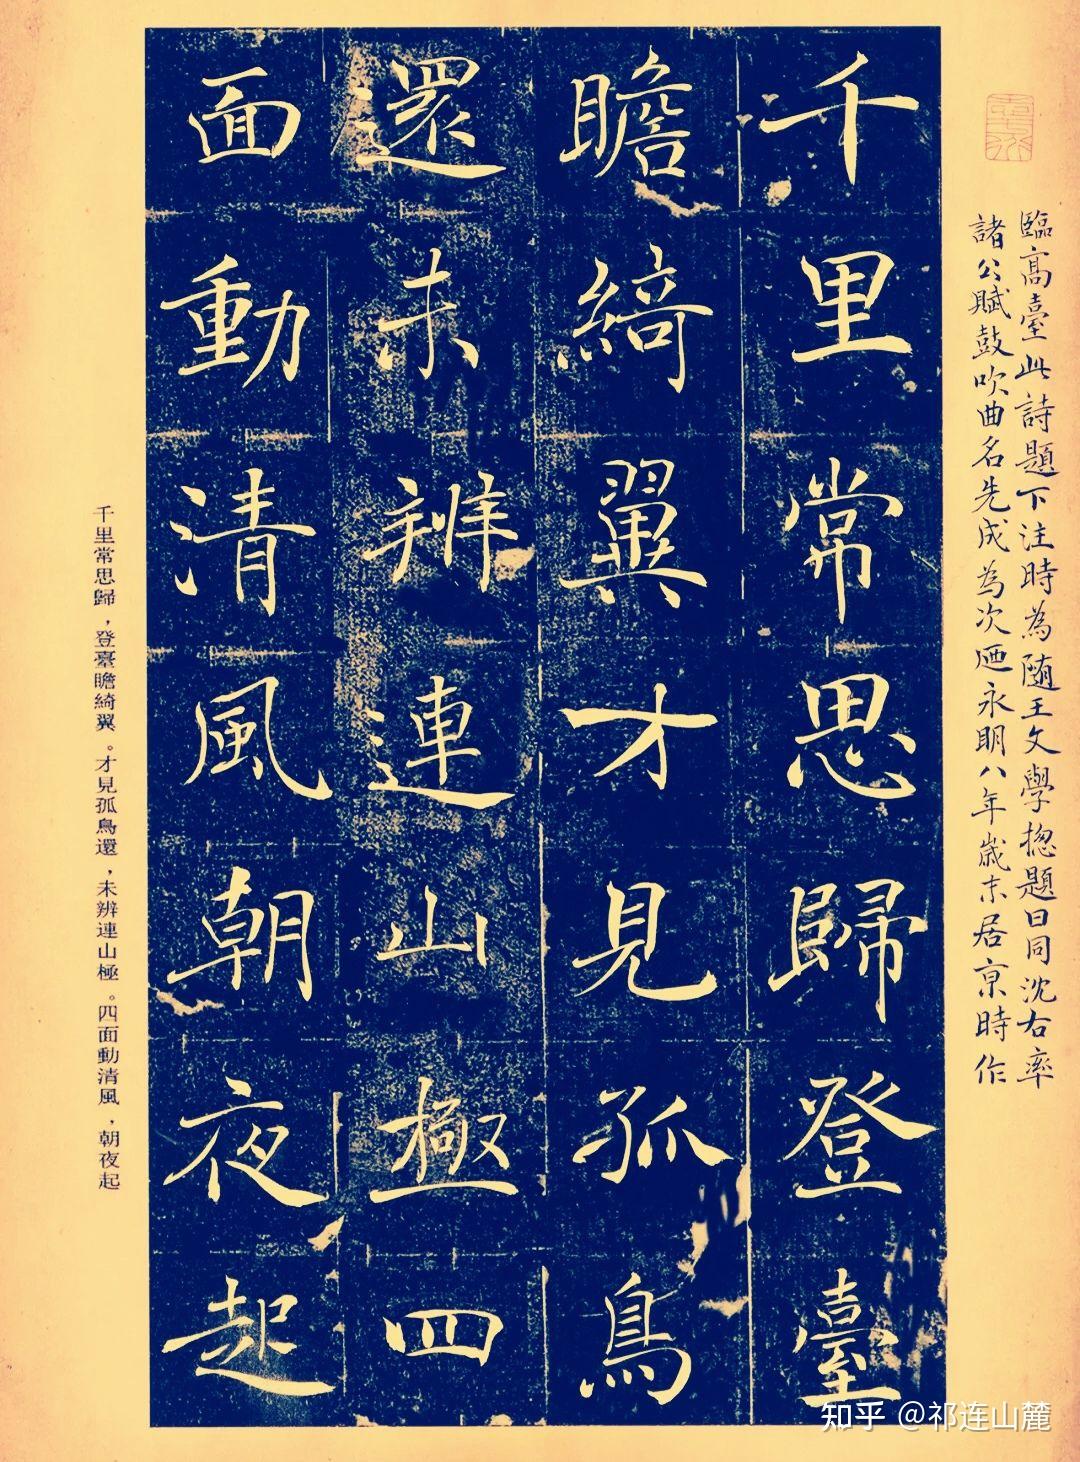 臨高臺此詩題下注時為隨王文學揔題曰同沈右率
諸公賦鼓吹曲名先成為次廼永明八年歲末居京時作
千里常思歸登臺
瞻綺翼才見孤鳥
還未辨連山極四
面動清風朝夜起
千里常思歸，登臺瞻綺翼。才見孤鳥還，未辨連山極。四面動清風，朝夜起
知乎 @祁连山麓